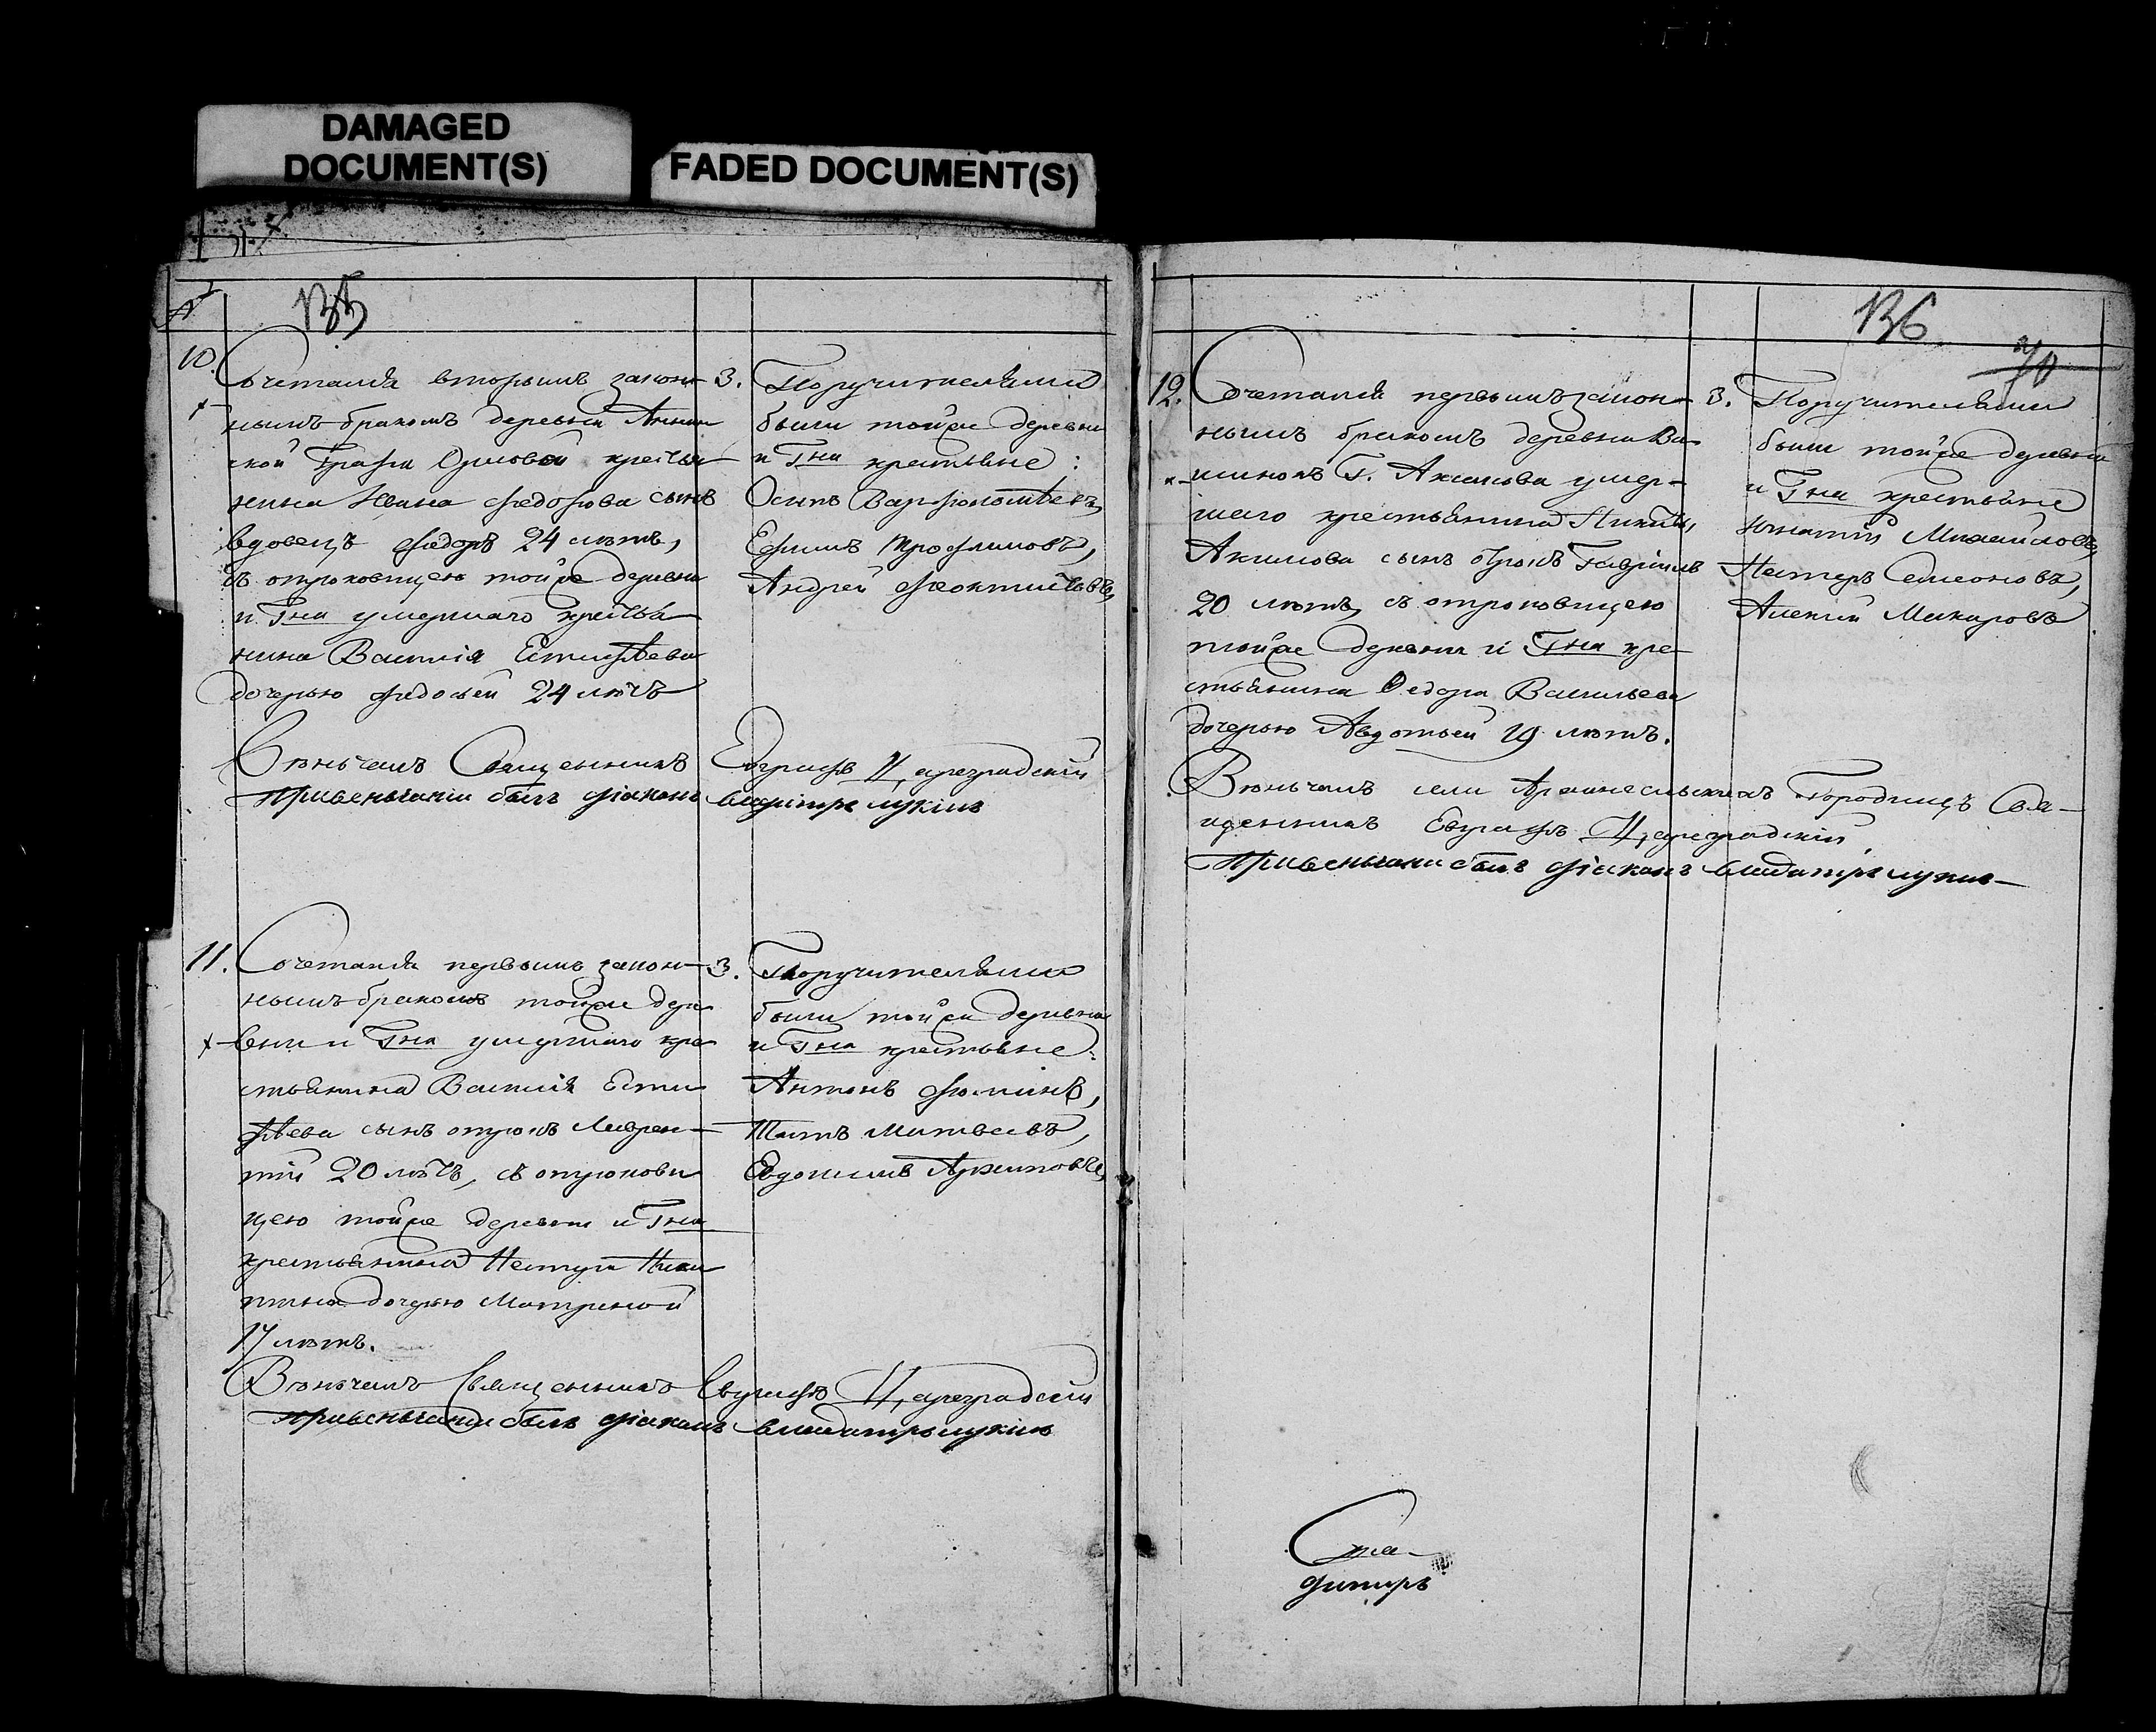 DAMAGED
DOCUMENT(S)
FADED DOCUMENT(S)
№
135
10.
Сочетался вторымъ закон-
нымъ бракомъ деревни Аннин
ской Графа Орлова крестья
нина Ивана Федорова сынъ
вдовецъ Федоръ 24 лѣтъ,
съ отроковицею тойже деревни
и Гна умершаго крестья
нина Василія Естифѣева
дочерью Федосьей 24 лѣтъ
3.
Поручителями
были тойже деревни
и Гна крестьяне:
Осипъ Варфоломѣевъ,
Ефимъ Трофимовъ,
Андрей Феоктистовъ,
Вѣньчалъ Священникъ Евграфъ Цареградскій
привеньчании былъ діаконъ владимиръ лукинъ
11.
Сочетался первымъ закон-
нымъ бракомъ тойже дере
вни и Гна умершаго кре
стьянина Василія Ести
фѣева сынъ отрокъ Лаврен-
тій 20 лѣтъ, съ отрокови
цею тойже деревни и Гна
крестьянина Нестера Ники
тина дочерью Матреной
17 лѣтъ.
3.
Поручителями
были тойже деревни
и Гна крестьяне:
Антонъ Фоминъ,
Титъ Матвеевъ,
Евдокимъ Архиповъ,
Вѣньчалъ Священникъ Евграфъ Цареградскій
привеньчании былъ діаконъ владимиръ лукинъ
136
70
12.
Сочетался первымъ закон-
нымъ бракомъ деревни Ва
шинокъ Г. Акимова умер-
шаго крестьянина Никиты
Акимова сынъ отрокъ Гаврiилъ
20 лѣтъ, съ отроковицею
тойже деревни и Гна кре-
стьянина Федора Васильева
дочерью Авдотьей 19 лѣтъ.
3.
Поручителями
были тойже деревни
и Гна крестьяне
Игнатій Михайловъ,
Нестеръ Семеновъ,
Алексѣй Макаровъ
Вѣньчалъ села Городищъ Свя-
щенникъ Евграфъ Цареградскій
привеньчании былъ діаконъ владимиръ лукинъ